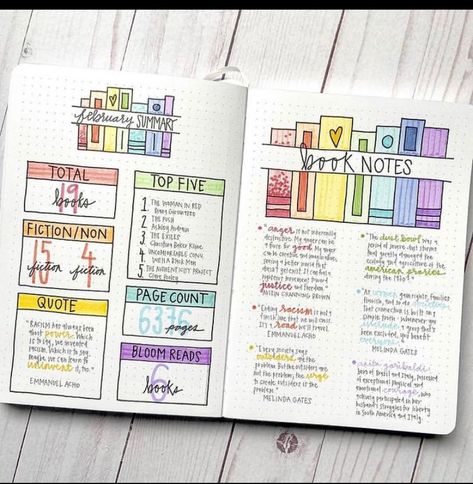 february SUMMARY
TOTAL
19
books
FICTION/NON
15 4
fiction fiction
QUOTE
"RACISM HAS ALWAYS BEEN
ABOUT power. POWER
IS TO SAY, WHO INVENTED
RACISM, WHICH IS TO SAY,
MAYBE WE CAN LEARN TO
uninvent it, too."
EMMANUEL ACHO
TOP FIVE
1. THE WOMAN IN RED
Diana Giovinazzo
2. THE PUSH
Ashley Audrain
3. THE EXILES
Christina Baker Kline
4. UNCOMFORTABLE CONV.
WITH A BLACK MAN
Emmanuel Acho
5. THE AUTHENTICITY PROJECT
Clare Pooley
PAGE COUNT
6376
pages
BLOOM READS
6
books
book NOTES
"anger IS not inherently
destructive. My anger can be
a force for good. My anger
can be creative and imaginative,
seeing a better world that
doesn't yet exist. It can fuel a
righteous movement toward
justice and freedom."
AUSTIN CHANNING BROWN
"Ending racism is not a
finish line that we will cross.
It's a road we'll travel."
EMMANUEL ACHO
"Every society says
outsiders are the
problem. But the outsiders are
not the problem; the urge
to create outsiders is the
problem."
MELINDA GATES
The dust bowl was a
period of severe dust storms
that greatly damaged the
ecology and agriculture of the
american prairies
during the 1930s.
"As women gain rights, families
flourish, and so do societies.
That connection is built on a
simple truth: Whenever you
include a group that's
been excluded, you benefit
everyone."
MELINDA GATES
anita garibaldi:
exceptional physical and
emotional courage, who
actively participated in her
husband's struggles for liberty
in South America and Italy.